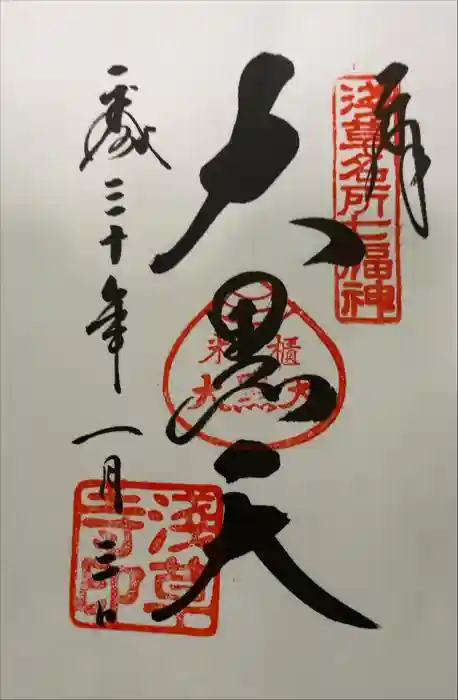 奉拝
浅草名所七福神
大黒天
米櫃
大黒天
平成三十年一月三日
浅草寺印